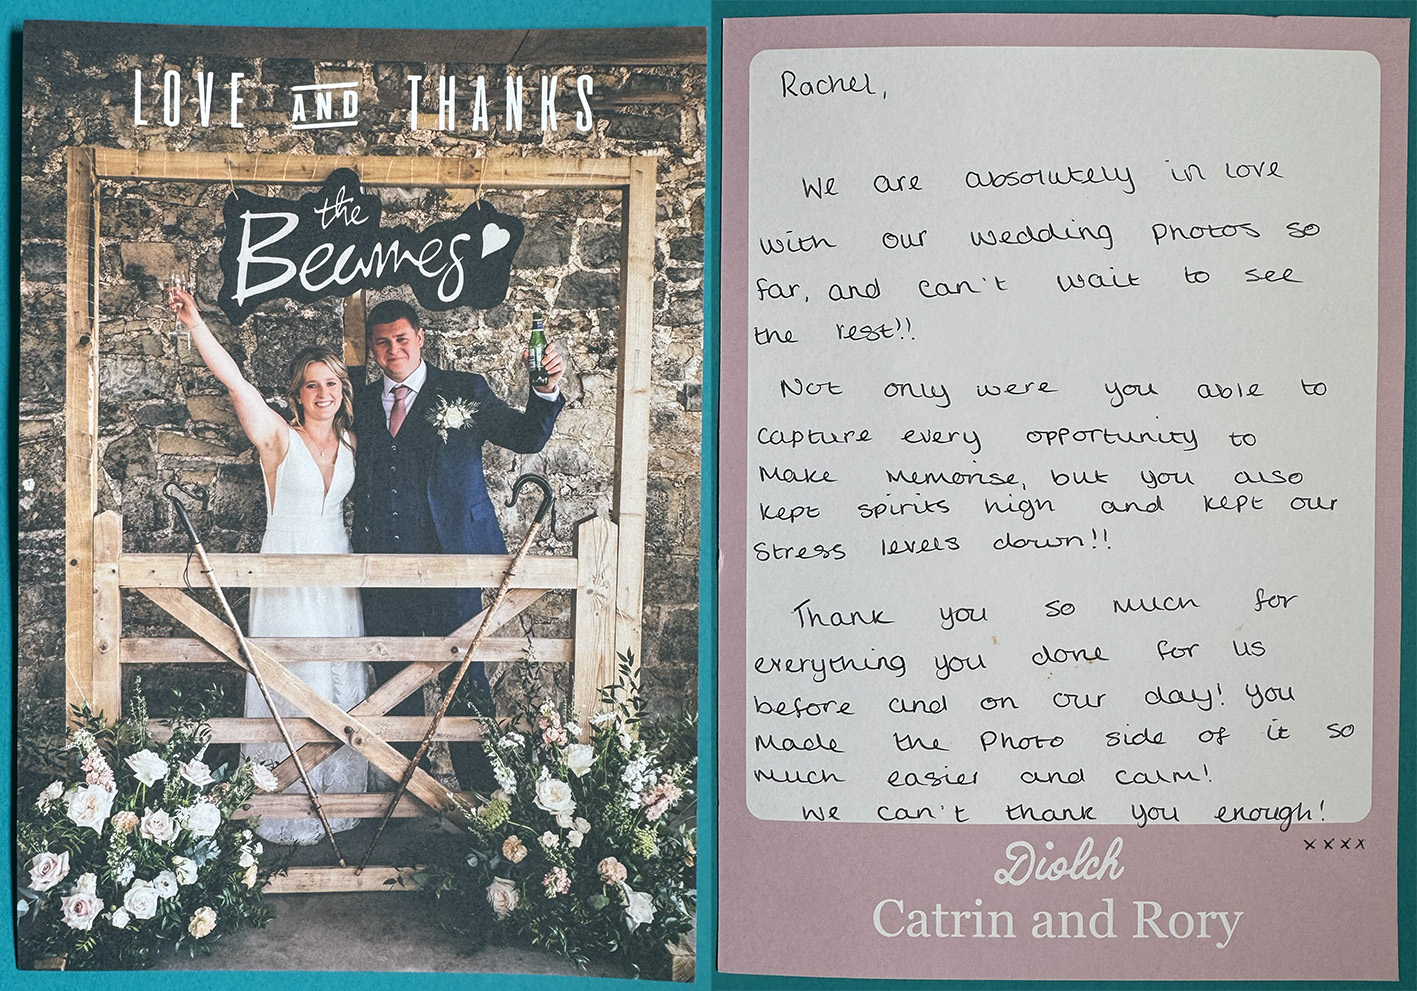 LOVE AND THANKS
the
Beames
Rachel,
We are absolutely in love
with our wedding photos so
far, and can't wait to see
the rest!!
Not only were you able to
capture every opportunity to
make memorise, but you also
kept spirits high and kept our
stress levels down!!
Thank you so much for
everything you done for us
before and on our day! you
made the photo side of it so
much easier and calm!
We can't thank you enough!
xxxx
Diolch
Catrin and Rory